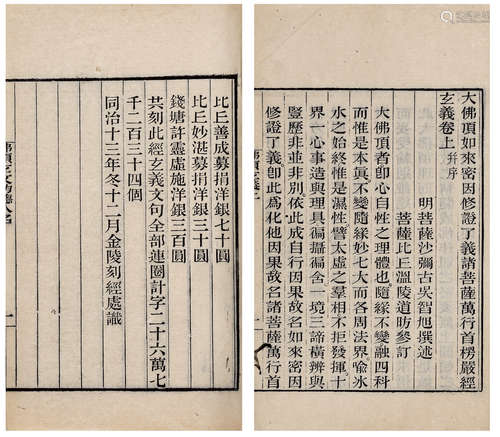 大佛頂如來密因修證了義諸菩薩萬行首楞嚴經
玄義卷上 幷序
明菩薩沙彌古吳智旭撰述
菩薩比丘溫陵道昉參訂
大佛頂者即心自性之理體也隨緣不變融四科
而惟是本眞不變隨緣妙七大而各周法界喩水
氷之始終惟是濕性譬太虛之羣相不拒發揮十
界一心事造與理具徧攝徧含一境三諦橫辨與
豎歷非並非別依此成自行因果故名如來密因
修證了義卽此爲化他因果故名諸菩薩萬行首
比丘善成募捐洋銀七十圓
比丘妙湛募捐洋銀三十圓
錢塘許靈虛施洋銀三百圓
共刻此經玄義文句全部連圈計字二十六萬七
千二百三十四個
同治十三年冬十二月金陵刻經處識